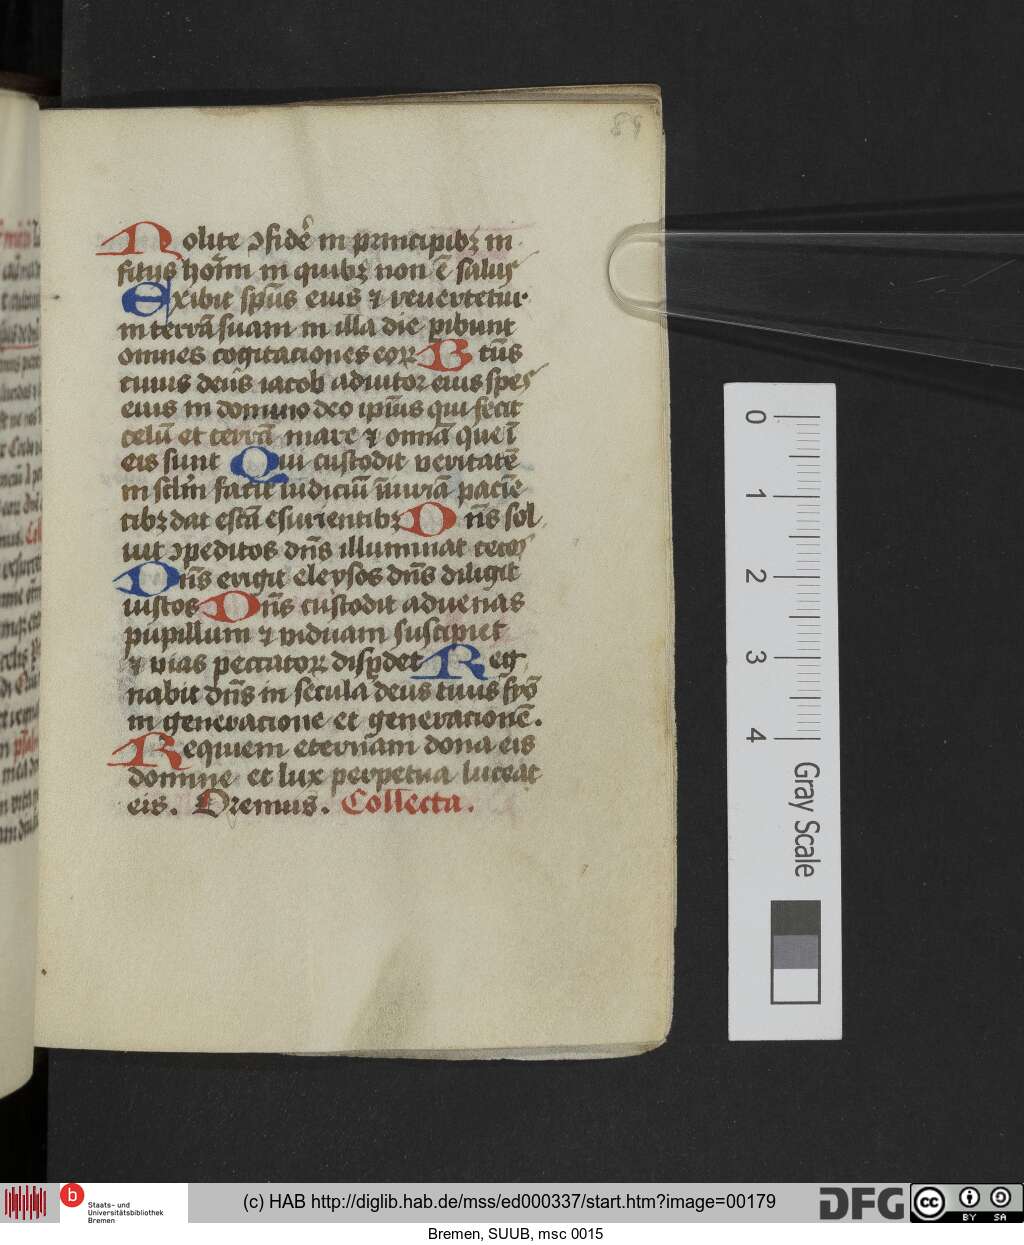 89
Nolite ↄfidẽ in principibꝫ in
filiis hoĩm in quibꝫ non ẽ salus
Exibit sp̃us eius ⁊ reuertetur
in terrã suam in illa die ꝑibunt
omnes cogitaciones eoꝝ B tũs
cuius deũs iacob adiutor eius spes
eius in domino deo ip̃ius qui fecit
celũ et terrã mare ⁊ omĩa que ĩ
eis sunt Qui custodit veritatẽ
in sclm̃ facit iudiciũ iniuriã pacie
tibꝫ dat escã esurientibꝫ Dñs sol
uit ↄpeditos dñs illuminat cecos
Dñs erigit elẏsos dñs diligit
iustos Dñs custodit aduenas
pupillum ⁊ viduam suscipiet
⁊ vias peccatoꝝ disꝑdet Reg
nabit dñs in secula deus tuus syõ
in generacione et generacionẽ.
Requiem eternam dona eis
domine et lux perpetua luceat
eis. Oremus. Collecta.
0
1
2
3
4
Gray Scale
b Staats- und
Universitätsbibliothek
Bremen
(c) HAB http://diglib.hab.de/mss/ed000337/start.htm?image=00179
DFG
cc BY SA
Bremen, SUUB, msc 0015